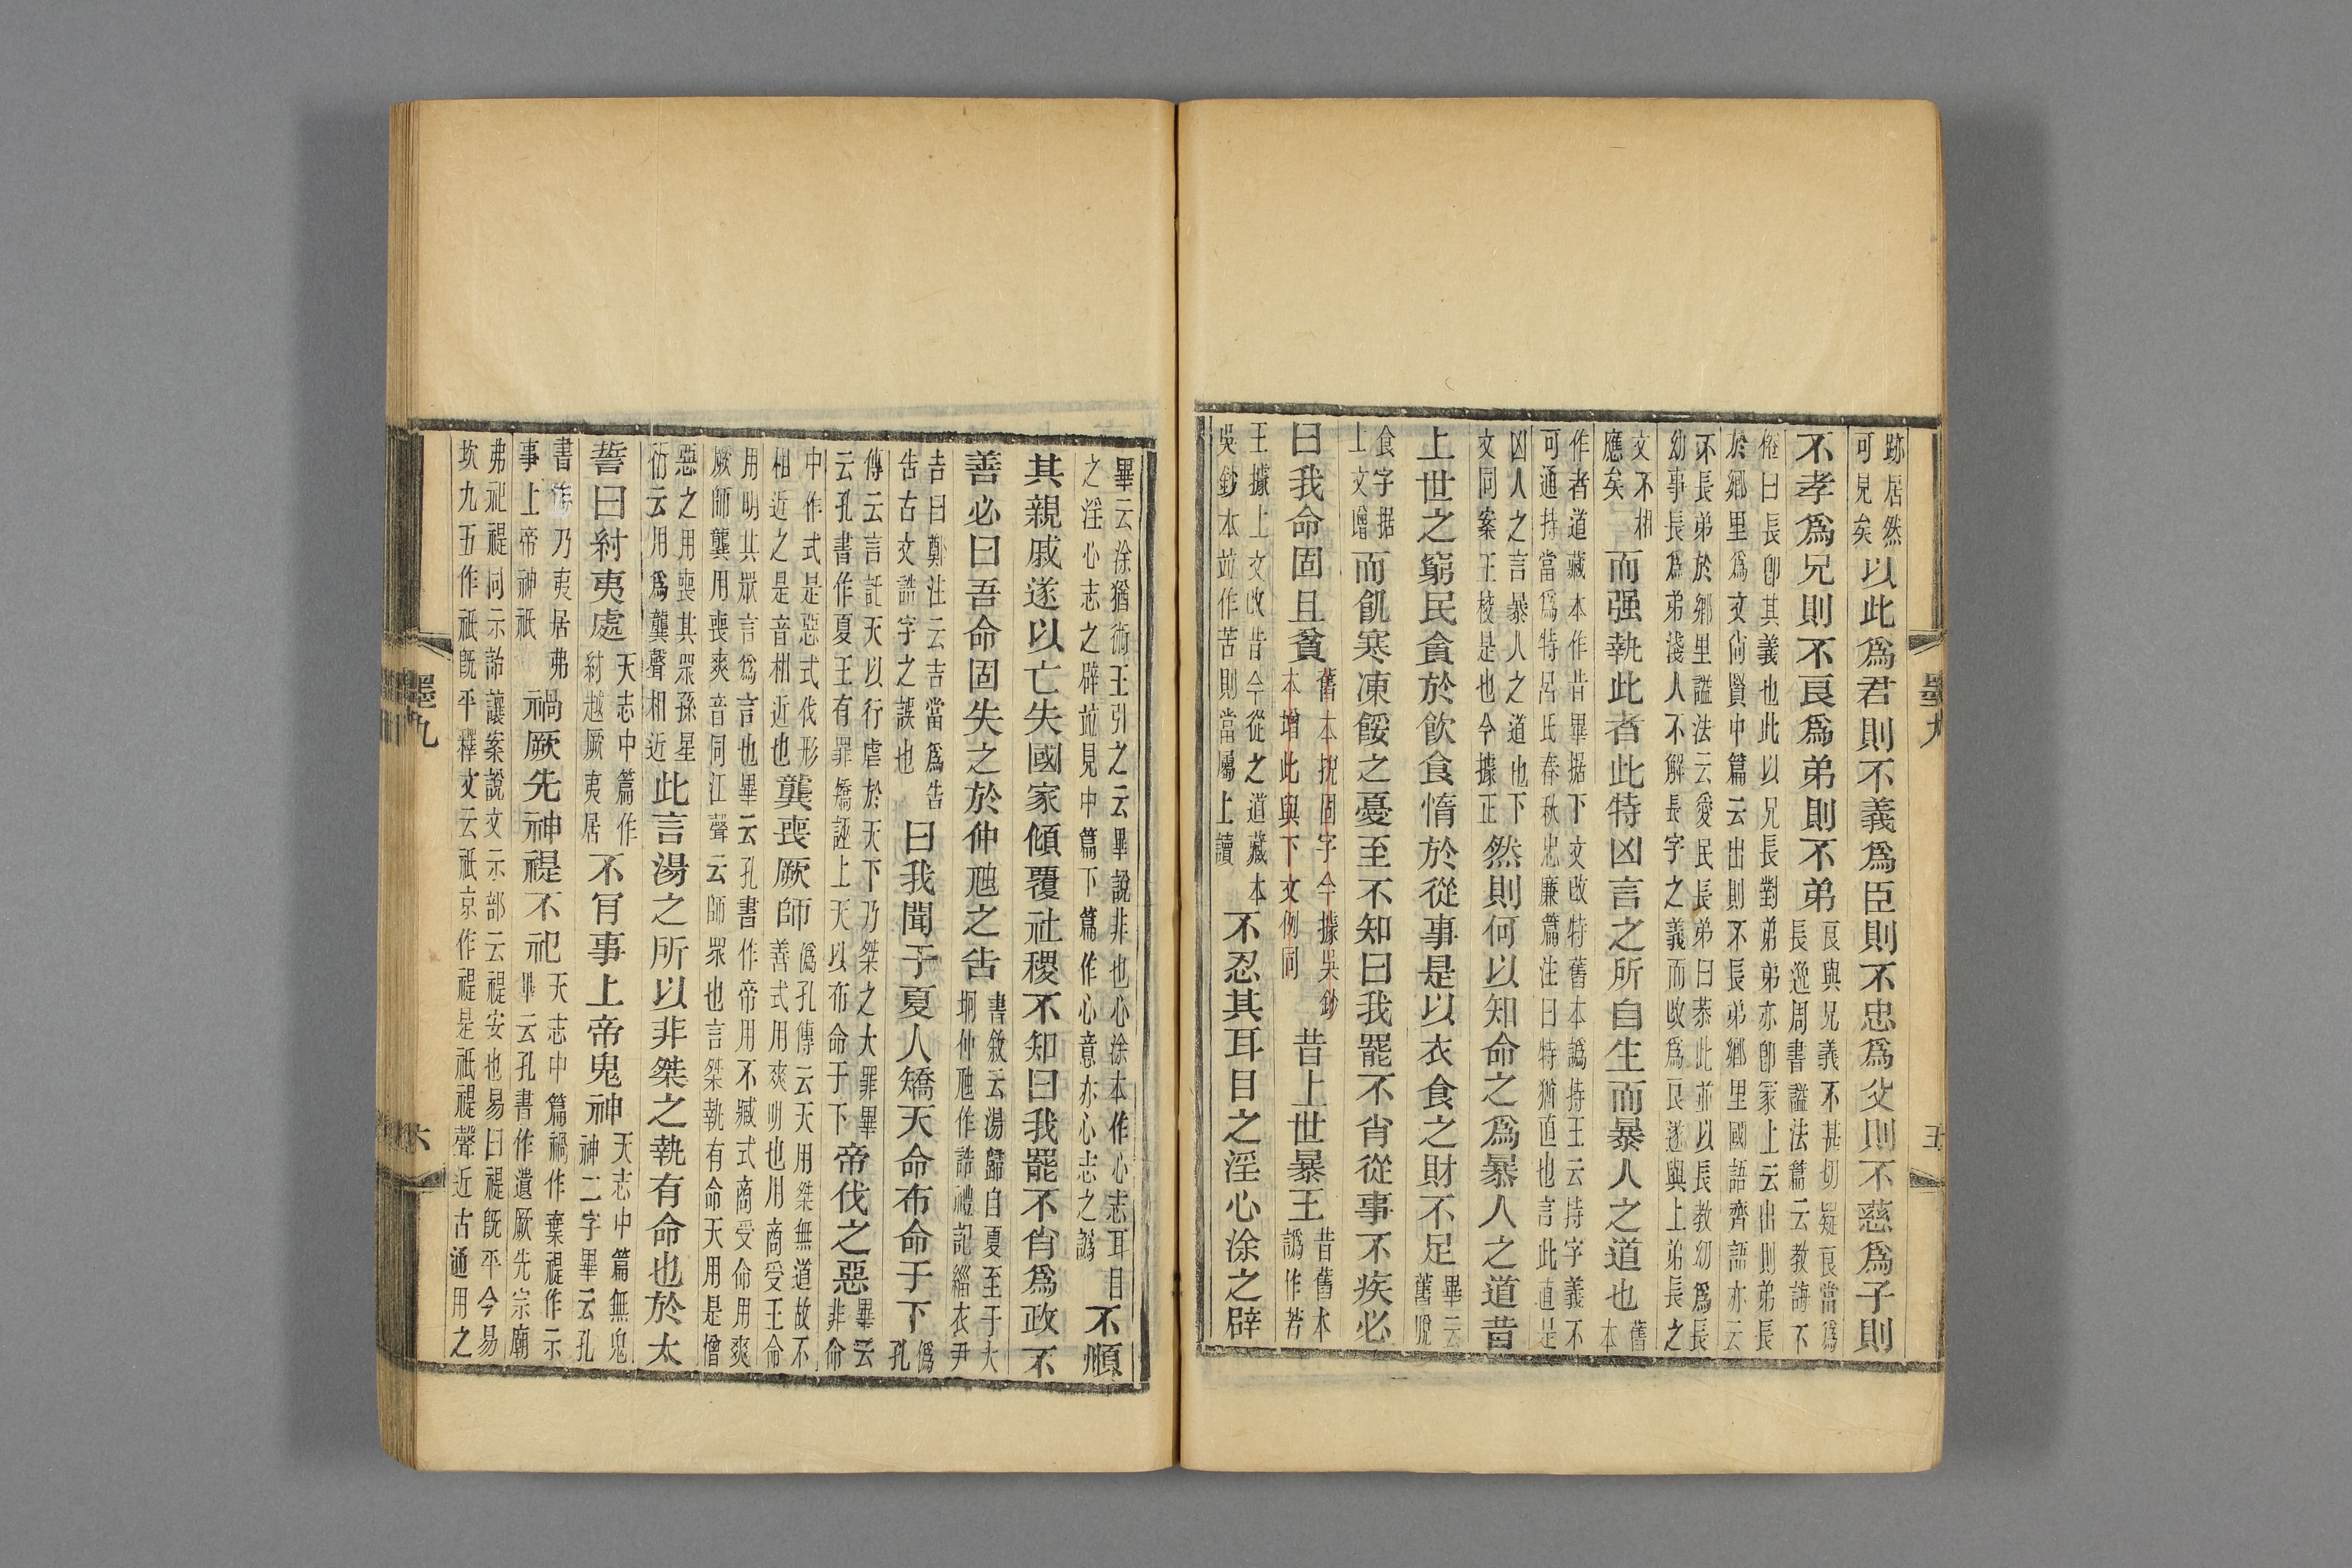 跡居然可見矣以此爲君則不義爲臣則不忠爲父則不慈爲子則
不孝爲兄則不良爲弟則不弟良與兄義不甚切疑良當爲長逸周書諡法篇云教誨不
倦曰長卽其義也此以兄長對弟弟亦卽家上云出則弟長於鄉里爲文尙賢中篇云出則不長弟鄉里國語齊語亦云
不長弟於鄉里諡法云愛民長弟曰恭此並以長教幼爲長幼事長爲弟淺人不解長字之義而改爲良遂與上弟長之
文不相應矣而强執此者此特凶言之所自生而暴人之道也舊本
作者道藏本作昔畢据下文改特舊本譌持王云持字義不可通持當爲特呂氏春秋忠廉篇注曰特猶直也言此直是
凶人之言暴人之道也下文同案王校是也今據正然則何以知命之爲暴人之道昔
上世之窮民貪於飲食惰於從事是以衣食之財不足畢云舊脫
食字据上文增而飢寒凍餒之憂至不知曰我罷不肖從事不疾必
曰我命固且貧舊本捝固字今據吳鈔本增此與下文例同昔上世暴王昔舊本譌作若
王據上文改昔今從之道藏本吳鈔本並作苦則當屬上讀不忍其耳目之淫心涂之辟
墨九
五
畢云涂猶術王引之云畢說非也心涂本作心志耳目之淫心志之辟並見中篇下篇作心意亦心志之譌不順
其親戚遂以亡失國家傾覆社稷不知曰我罷不肖爲政不
善必曰吾命固失之於仲虺之告書敘云湯歸自夏至于大坰仲虺作誥禮記緇衣尹
吉曰鄭注云吉當爲告告古文誥字之誤也曰我聞于夏人矯天命布命于下僞孔
傳云言託天以行虐於天下乃桀之大罪畢云孔書作夏王有罪矯誣上天以布命于下帝伐之惡畢云非命
中作式是惡式伐形相近之是音相近也龔喪厥師僞孔傳云天用桀無道故不善式用爽明也用商受王命
用明其眾言爲言也畢云孔書作帝用不臧式商受命用爽厥師龔用喪爽音同江聲云師眾也言桀執有命天用是憎
惡之用喪其眾孫星衍云用爲龔聲相近此言湯之所以非桀之執有命也於太
誓曰紂夷處天志中篇作紂越厥夷居不肎事上帝鬼神天志中篇無鬼神二字畢云孔
書作乃夷居弗事上帝神祇禍厥先神禔不祀天志中篇禍作棄禔作示畢云孔書作遺厥先宗廟
弗祀禔同示詒讓案說文示部云禔安也易曰禔旣平今易坎九五作祇旣平釋文云祇京作禔是祇禔聲近古通用之
墨九
六